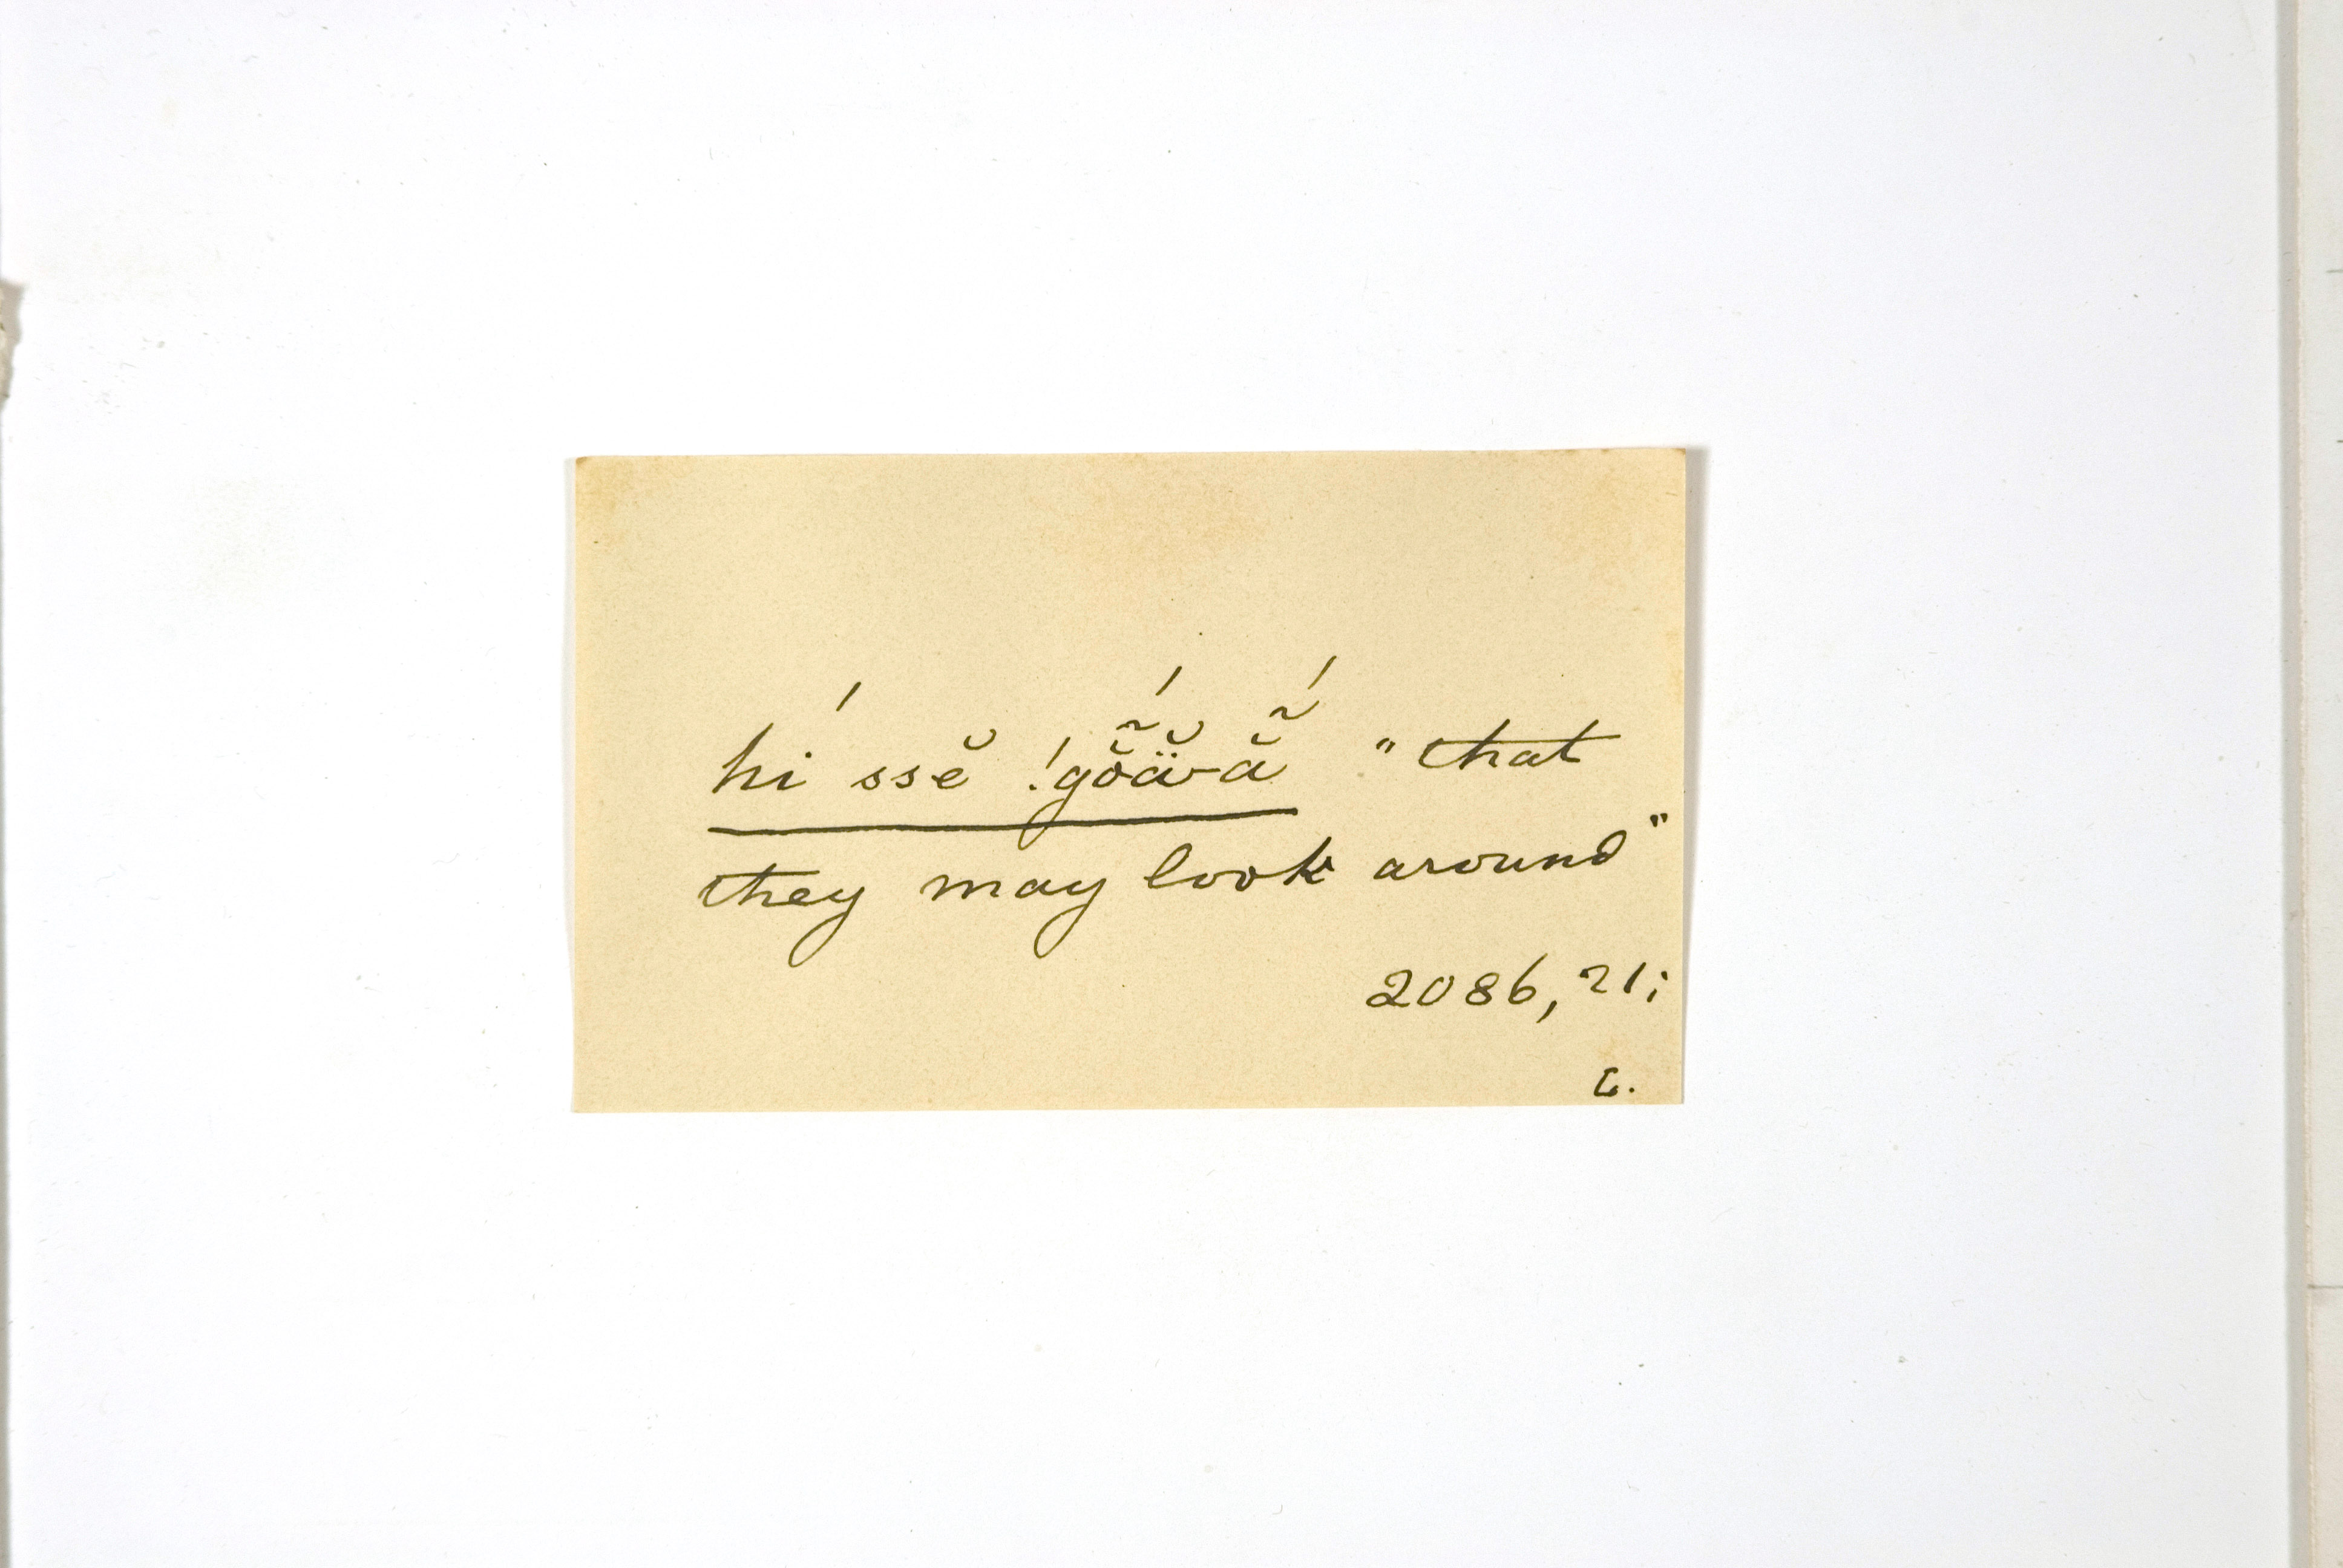 hí ssĕ !gõ̆ä́̆-ã̆́ "that
they may look around"
2086, 21;
L.